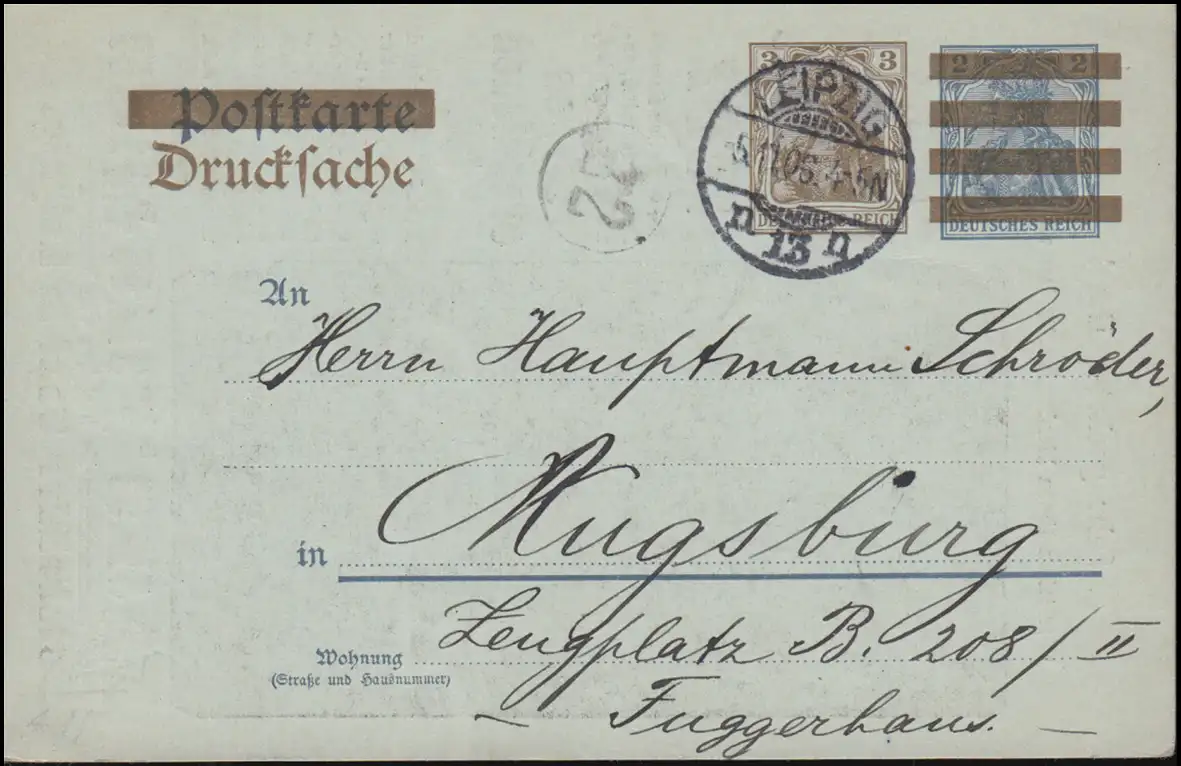 Postkarte
Drucksache
3 3
DEUTSCHES REICH
2 2
DEUTSCHES REICH
LEIPZIG
13
n n
25
An
Herrn Hauptmann Schröder,
in Augsburg
Wohnung Zeugplatz B. 208/II
(Straße und Hausnummer)
– Fuggerhaus. –